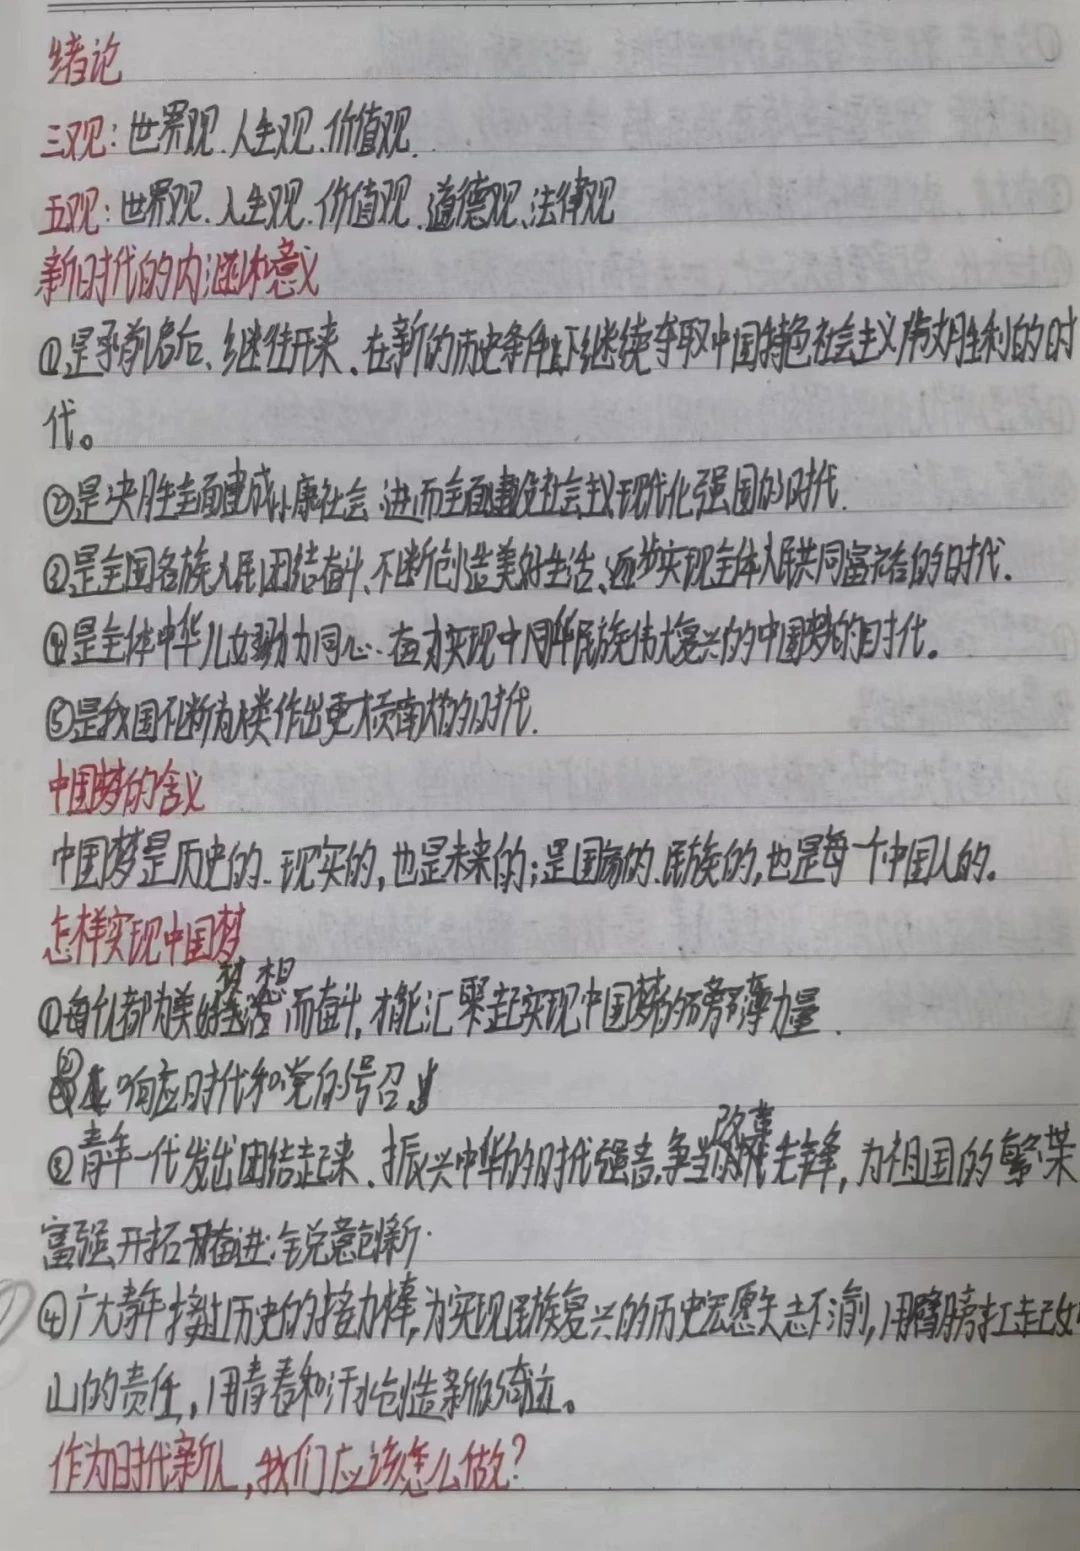 绪论
三观：世界观、人生观、价值观.
五观：世界观、人生观、价值观、道德观、法律观
新时代的内涵和意义
①是承前启后、继往开来、在新的历史条件下继续夺取中国特色社会主义伟大胜利的时
代。
②是决胜全面建成小康社会、进而全面建设社会主义现代化强国的时代.
③是全国各族人民团结奋斗、不断创造美好生活、逐步实现全体人民共同富裕的时代.
④是全体中华儿女勠力同心、奋力实现中华民族伟大复兴的中国梦的时代。
⑤是我国不断为人类作出更大贡献的时代.
中国梦的含义
中国梦是历史的、现实的，也是未来的；是国家的、民族的，也是每一个中国人的。
怎样实现中国梦
①每个人都为美好梦想而奋斗，才能汇聚起实现中国梦的磅礴力量.
②响应时代和党的号召
③青年一代发出团结起来、振兴中华的时代强音，争当改革先锋，为祖国的繁荣
富强开拓奋进、锐意创新.
④广大青年接过历史的接力棒，为实现民族复兴的历史宏愿矢志不渝，用臂膀扛起如
山的责任，用青春和汗水创造新的奇迹。
作为时代新人，我们应该怎么做？